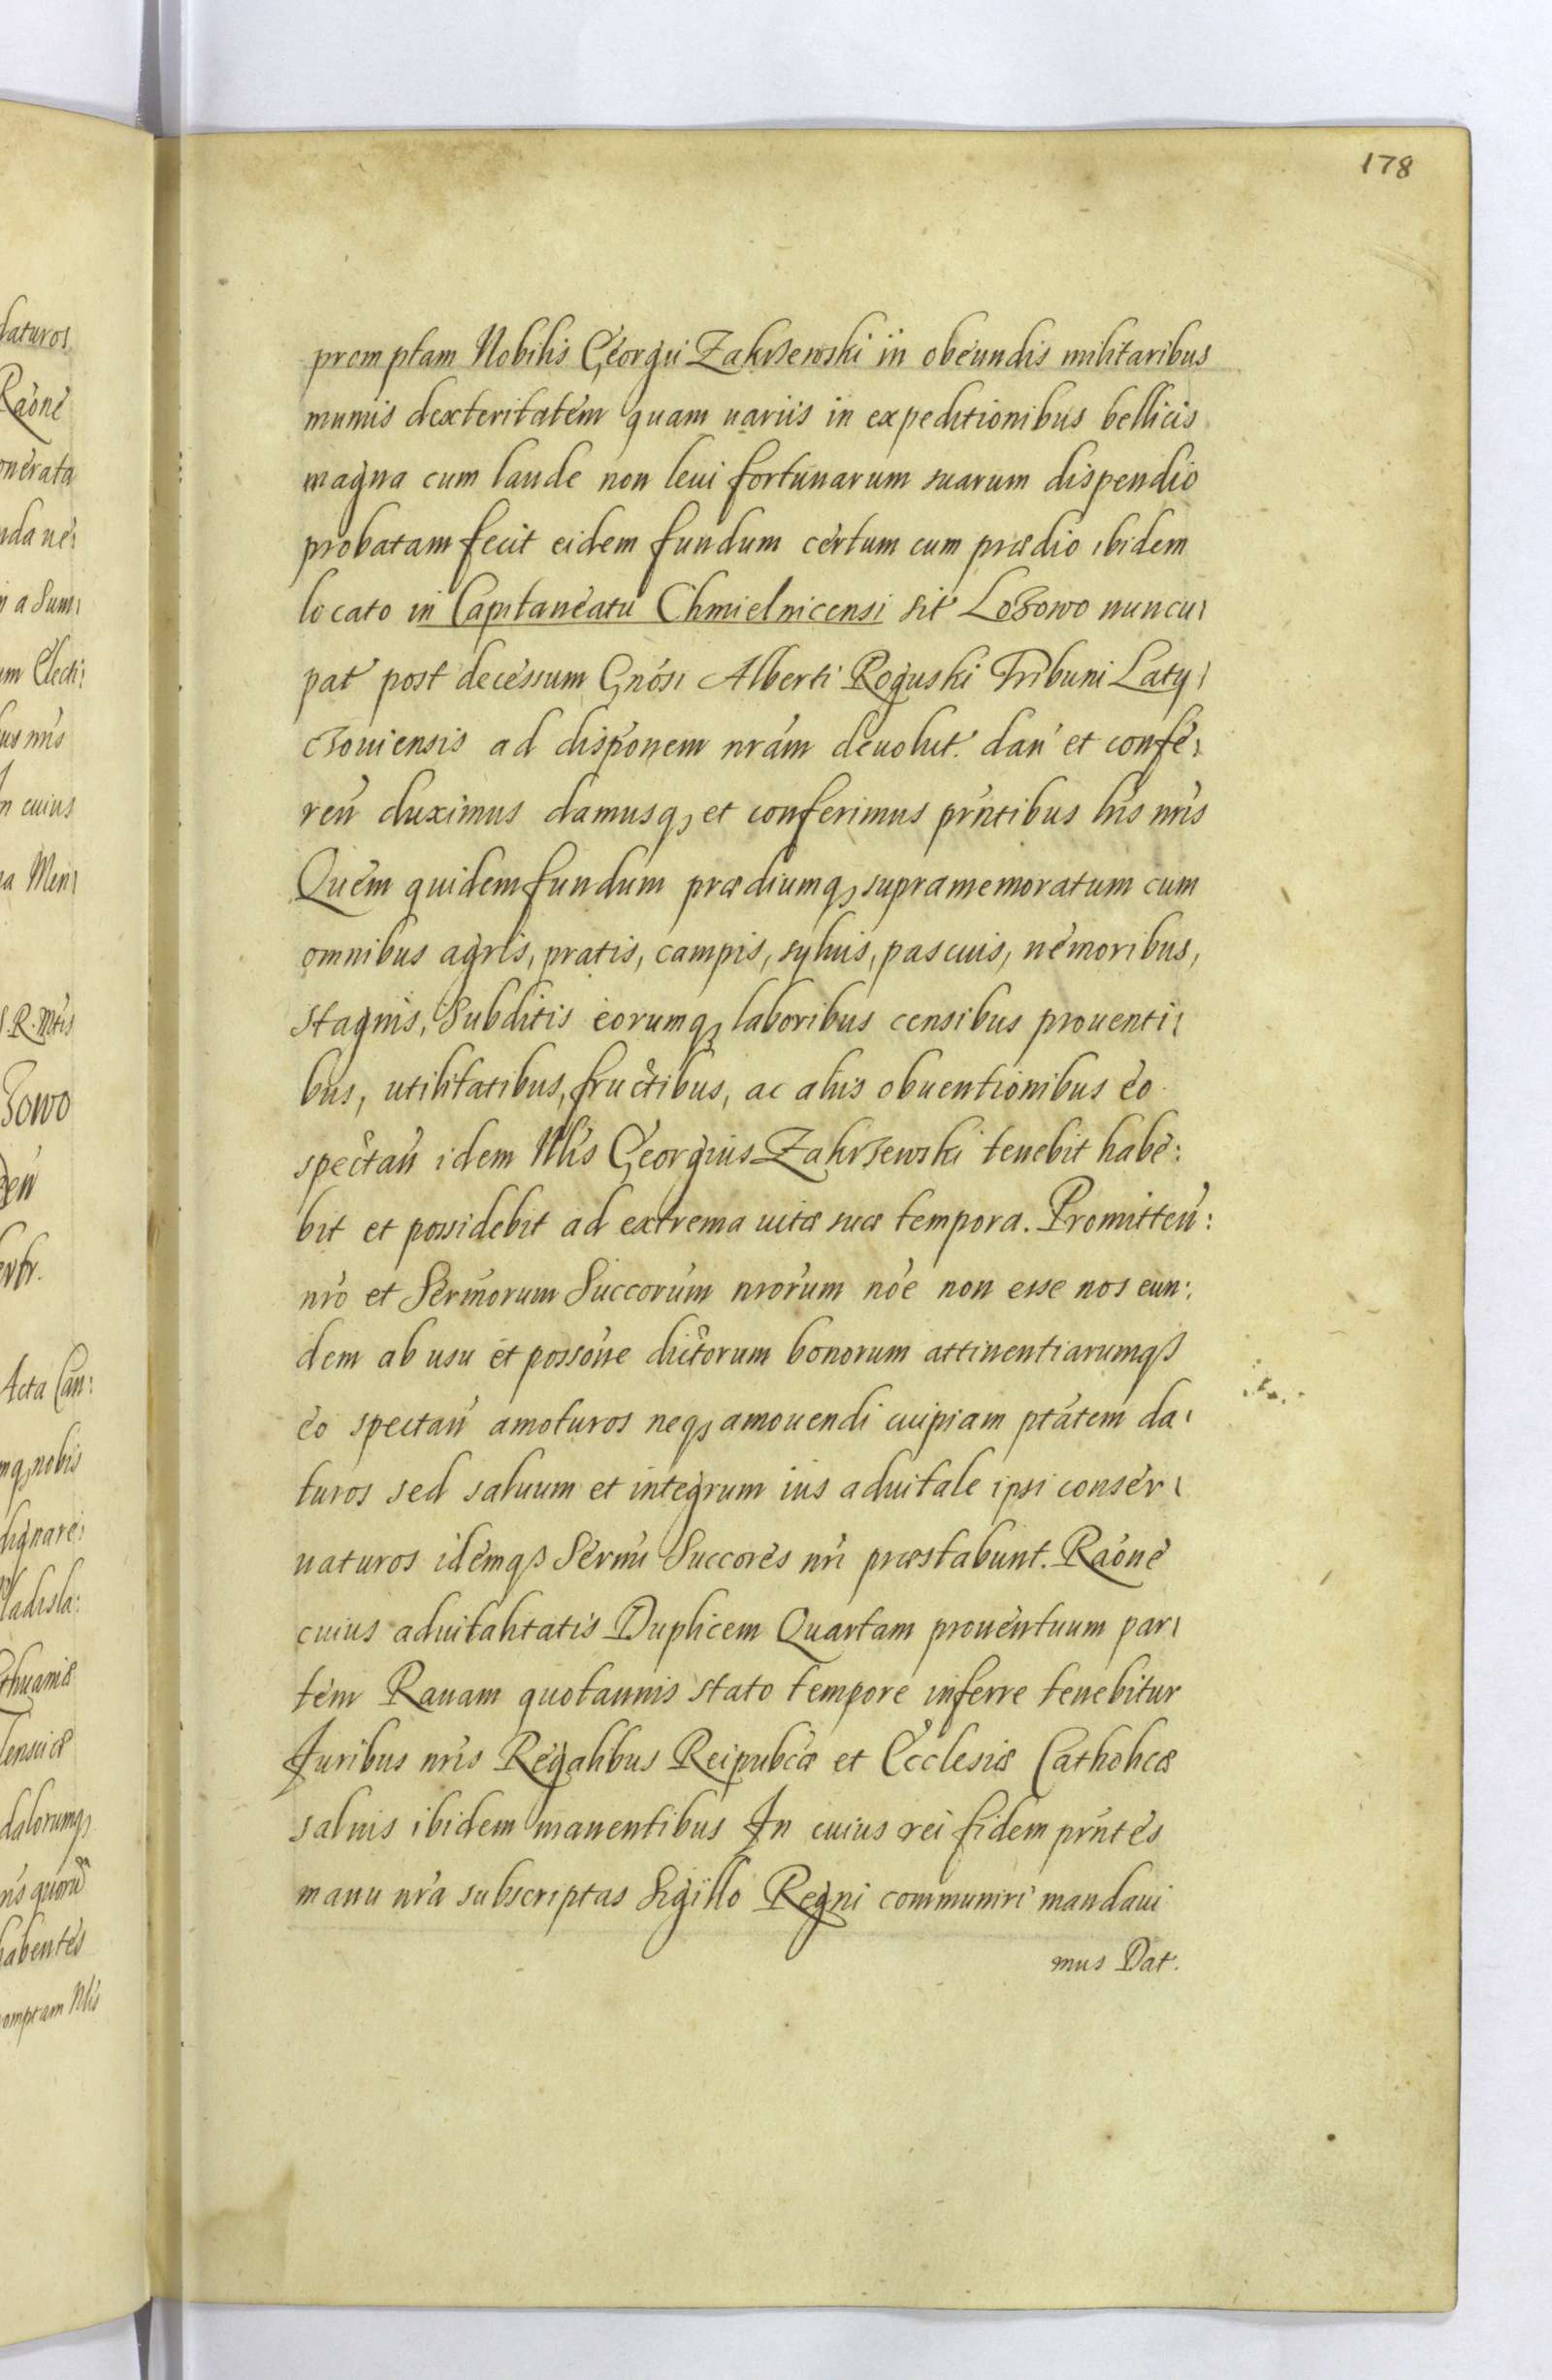 178
promptam Nobilis Georgii Zakrzewski in obeundis militaribus
muniis dexteritatem quam uariis in expeditionibus bellicis
magna cum laude non leui fortunarum suarum dispendio
probatam fecit eidem fundum certum cum prædio ibidem
locato in Capitaneatu Chmielnicensi sit Lozowo nuncu
pat post decessum Gnosi Alberti Roguski Tribuni Laty
czouiensis ad disponem nram deuolut. dan et confe
ren duximus damusq, et conferimus prntibus lris nris
Quem quidem fundum prædiumq, supramemoratum cum
omnibus agris, pratis, campis, syluis, pascuis, nemoribus,
stagnis, Subditis eorumq, laboribus censibus prouenti
bus, utilitatibus, fructibus, ac aliis obuentionibus eo
spectan idem Nlis Georgius Zakrzewski tenebit habe:
bit et possidebit ad extrema uitæ suæ tempora. Promitten:
nro et Sermorum Succorum nrorum noe non esse nos eun:
dem ab usu et possone dictorum bonorum attinentiarumqȝ
eo spectan amoturos neq, amouendi cuipiam ptatem da
turos sed saluum et integrum ius aduitale ipsi conser
uaturos idemqȝ Sermi Succores nri præstabunt. Raone
cuius aduitalitatis Duplicem Quartam prouentuum par
tem Rauam quotannis stato tempore inferre tenebitur
Juribus nris Regalibus Reipubcæ et Ecclesiæ Catholicæ
saluis ibidem manentibus In cuius rei fidem prntes
manu nra subscriptas Sigillo Regni communiri mandaui
mus Dat.